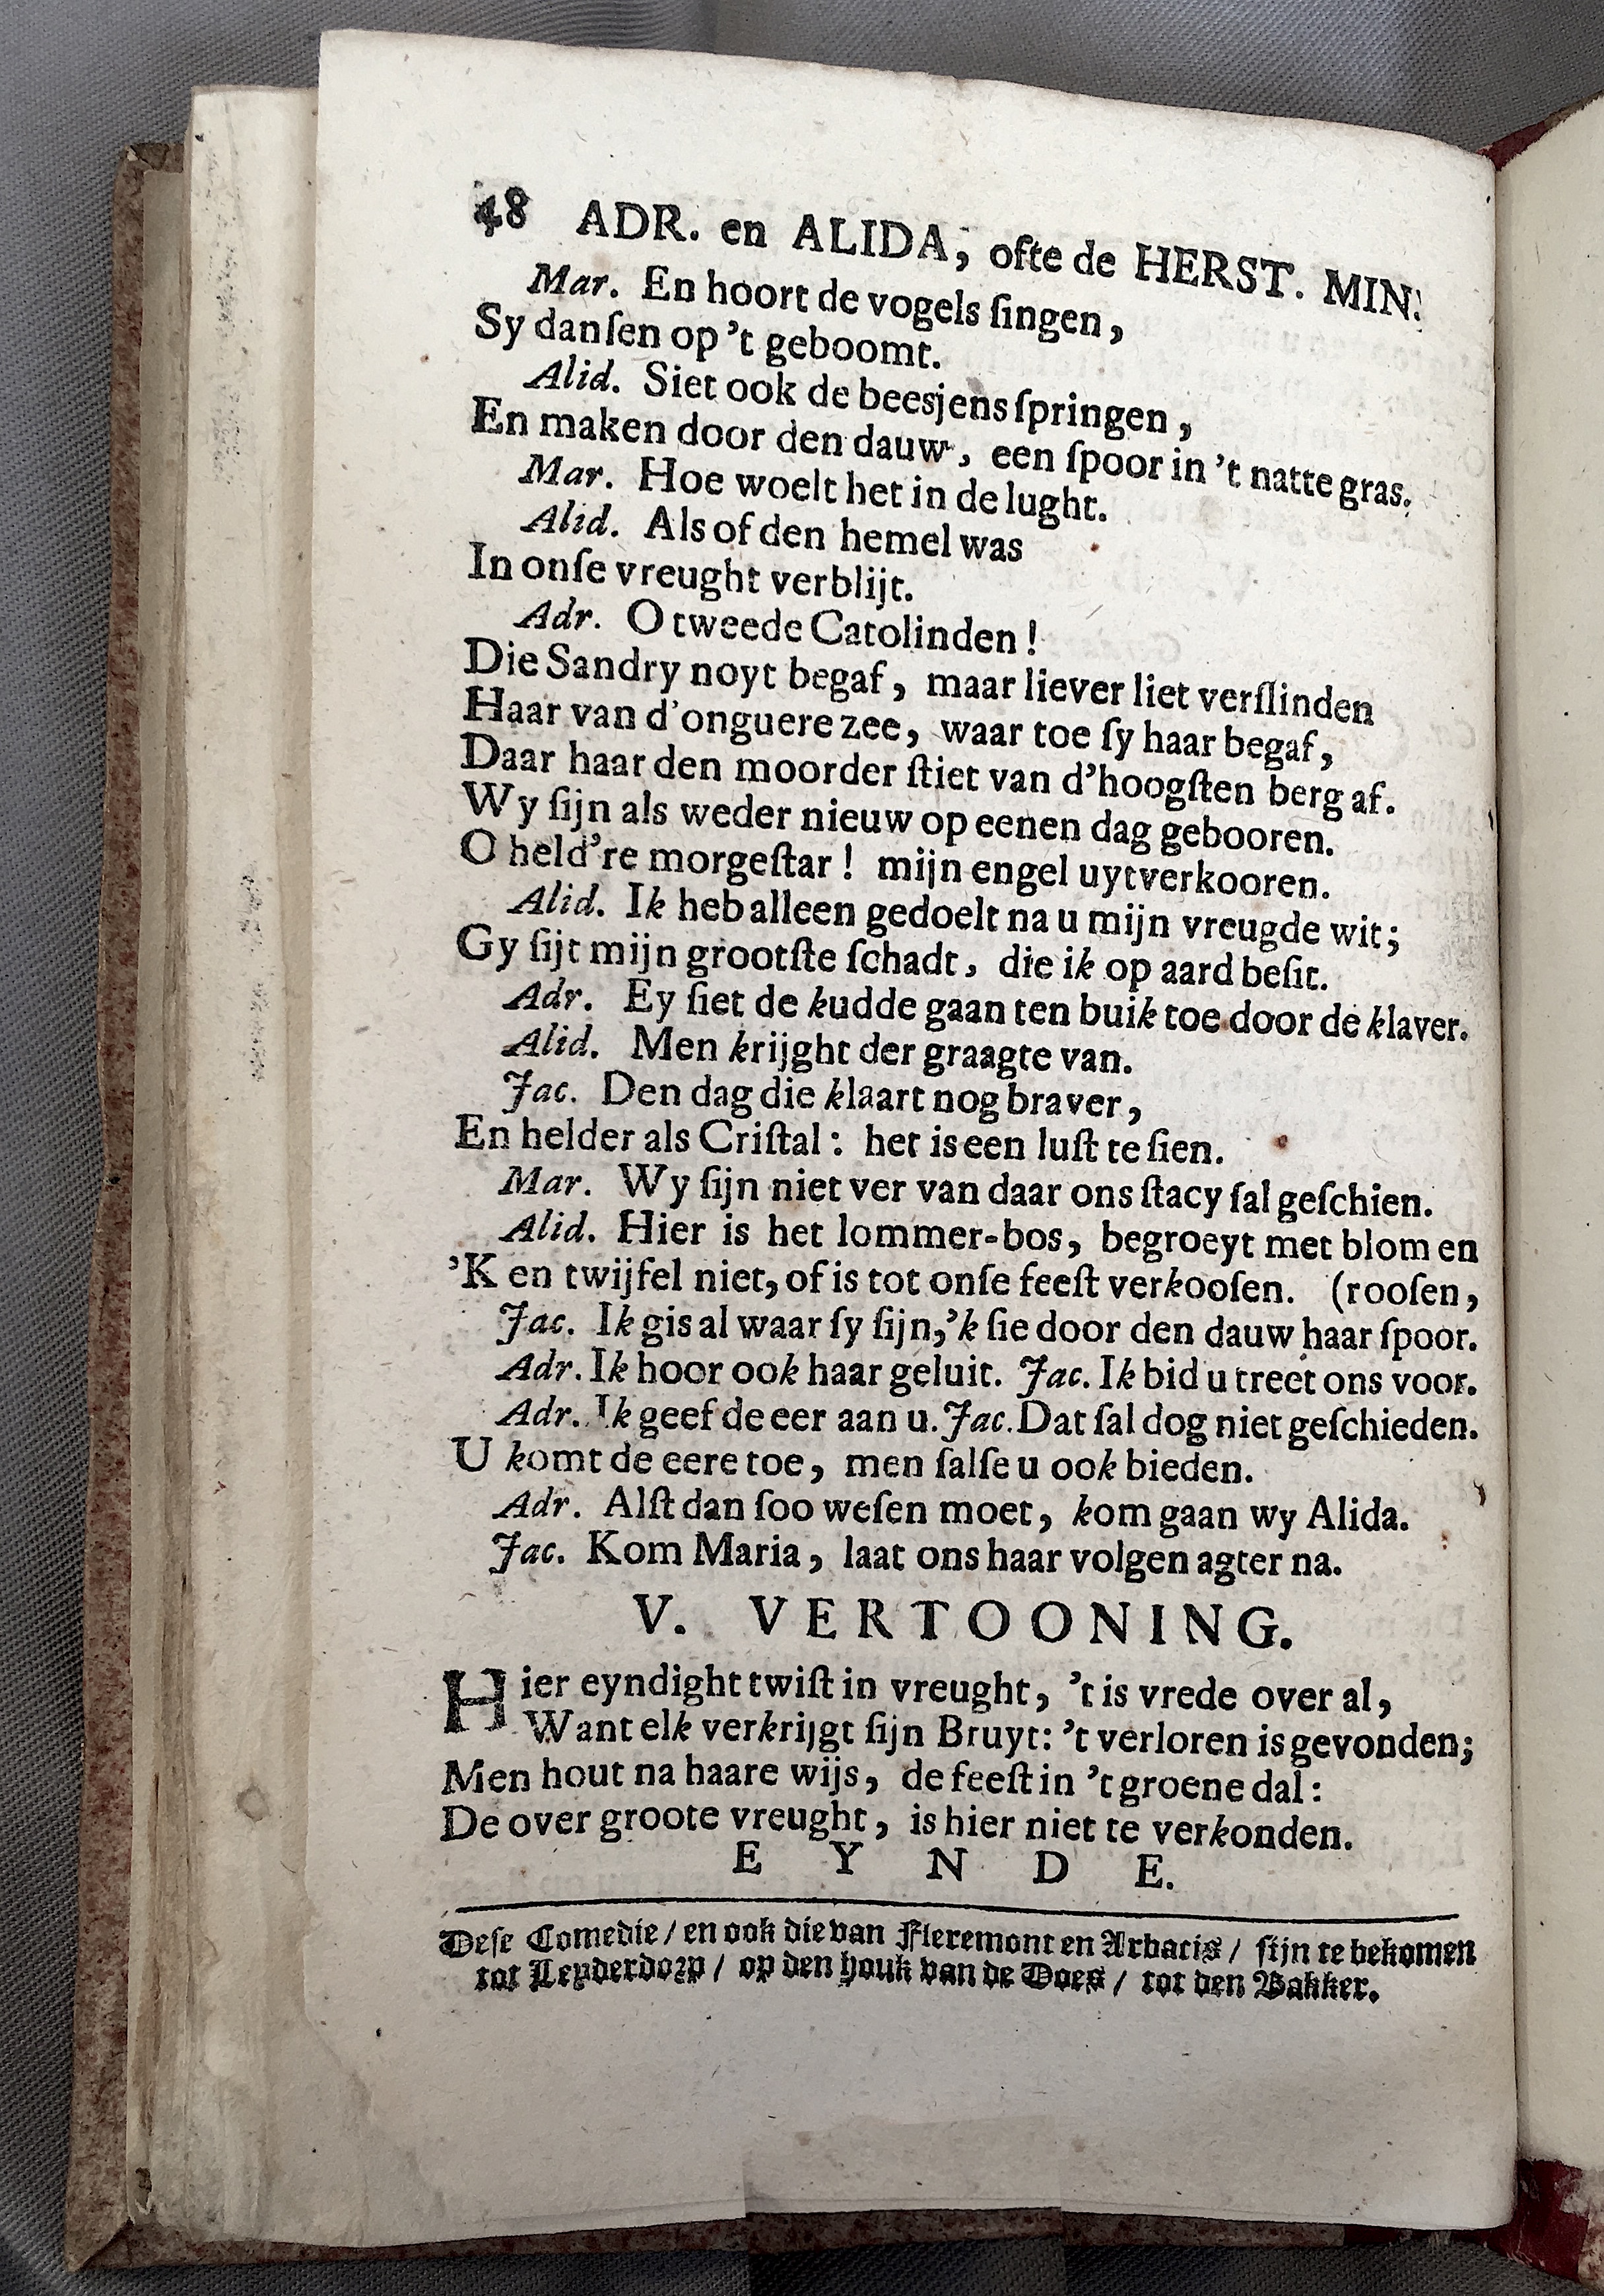 48 ADR. en ALIDA, ofte de HERST. MIN.
Mar. En hoort de vogels ſingen,
Sy danſen op 't geboomt.
Alid. Siet ook de beesjens ſpringen,
En maken door den dauw, een ſpoor in 't natte gras.
Mar. Hoe woelt het in de lught.
Alid. Als of den hemel was
In onſe vreught verblijt.
Adr. O tweede Catolinden!
Die Sandry noyt begaf, maar liever liet verſlinden
Haar van d'onguere zee, waar toe ſy haar begaf,
Daar haar den moorder ſtiet van d'hoogſten berg af.
Wy ſijn als weder nieuw op eenen dag gebooren.
O held're morgeſtar! mijn engel uytverkooren.
Alid. Ik heb alleen gedoelt na u mijn vreugde wit;
Gy ſijt mijn grootſte ſchadt, die ik op aard beſit.
Adr. Ey ſiet de kudde gaan ten buik toe door de klaver.
Alid. Men krijght der graagte van.
Jac. Den dag die klaart nog braver,
En helder als Criſtal: het is een luſt te ſien.
Mar. Wy ſijn niet ver van daar ons ſtacy ſal geſchien.
Alid. Hier is het lommer-bos, begroeyt met blom en
'K en twijfel niet, of is tot onſe feeſt verkooſen. (rooſen,
Jac. Ik gis al waar ſy ſijn,'k ſie door den dauw haar ſpoor.
Adr. Ik hoor ook haar geluit. Jac. Ik bid u treet ons voor.
Adr. Ik geef de eer aan u. Jac. Dat ſal dog niet geſchieden.
U komt de eere toe, men ſalſe u ook bieden.
Adr. Alſt dan ſoo weſen moet, kom gaan wy Alida.
Jac. Kom Maria, laat ons haar volgen agter na.
V. VERTOONING.
Hier eyndight twiſt in vreught, 't is vrede over al,
Want elk verkrijgt ſijn Bruyt: 't verloren is gevonden;
Men hout na haare wijs, de feeſt in 't groene dal:
De over groote vreught, is hier niet te verkonden.
E Y N D E.
Deſe Comedie / en ook die van Fleremont en Arbatis / ſijn te bekomen
tot Leyderdorp / op den houk van de Does / tot den Bakker.